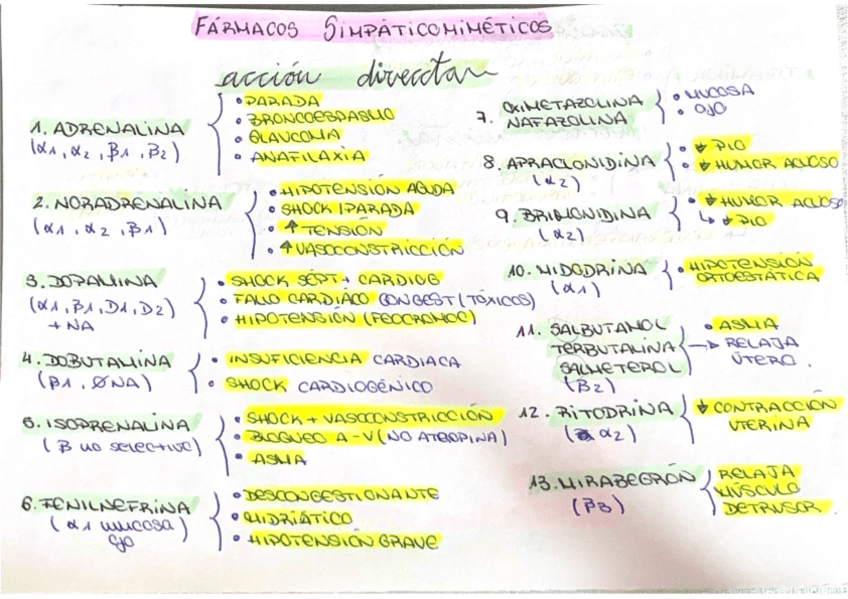 FÁRMACOS SIMPÁTICOMIMÉTICOS
acción directa
1. ADRENALINA
(α1, α2, β1, β2)
• PARADA
• BRONCOESPASMO
• GLAUCOMA
• ANAFILAXIA
2. NORADRENALINA
(α1, α2, β1)
• HIPOTENSIÓN AGUDA
• SHOCK / PARADA
• ↑ TENSIÓN
• ↑ VASOCONSTRICCIÓN
3. DOPAMINA
(α1, β1, D1, D2)
+ NA
• SHOCK SÉPT + CARDIOG
• FALLO CARDÍACO CONGEST (TÓXICOS)
• HIPOTENSIÓN (FEOCROMOC)
4. DOBUTAMINA
(β1, ØNA)
• INSUFICIENCIA CARDIACA
• SHOCK CARDIOGÉNICO
5. ISOPRENALINA
(β no selectivo)
• SHOCK + VASOCONSTRICCIÓN
• BLOQUEO A-V (NO ATROPINA)
• ASMA
6. FENILNEFRINA
(α1 mucosa)
ojo
• DESCONGESTIONANTE
• MIDRIÁTICO
• HIPOTENSIÓN GRAVE
7. OXIMETAZOLINA
NAFAZOLINA
• MUCOSA
• OJO
8. APRACLONIDINA
(α2)
• ↓ PIO
• ↓ HUMOR ACUOSO
9. BRIMONIDINA
(α2)
• ↓ HUMOR ACUOSO
↳ ↓ PIO
10. MIDODRINA
(α1)
• HIPOTENSIÓN
ORTOESTÁTICA
11. SALBUTAMOL
TERBUTALINA
SALMETEROL
(β2)
• ASMA
→ RELAJA
ÚTERO.
12. RITODRINA
(α2)
↓ CONTRACCIÓN
UTERINA
13. MIRABEGRÓN
(β3)
RELAJA
MÚSCULO
DETRUSOR